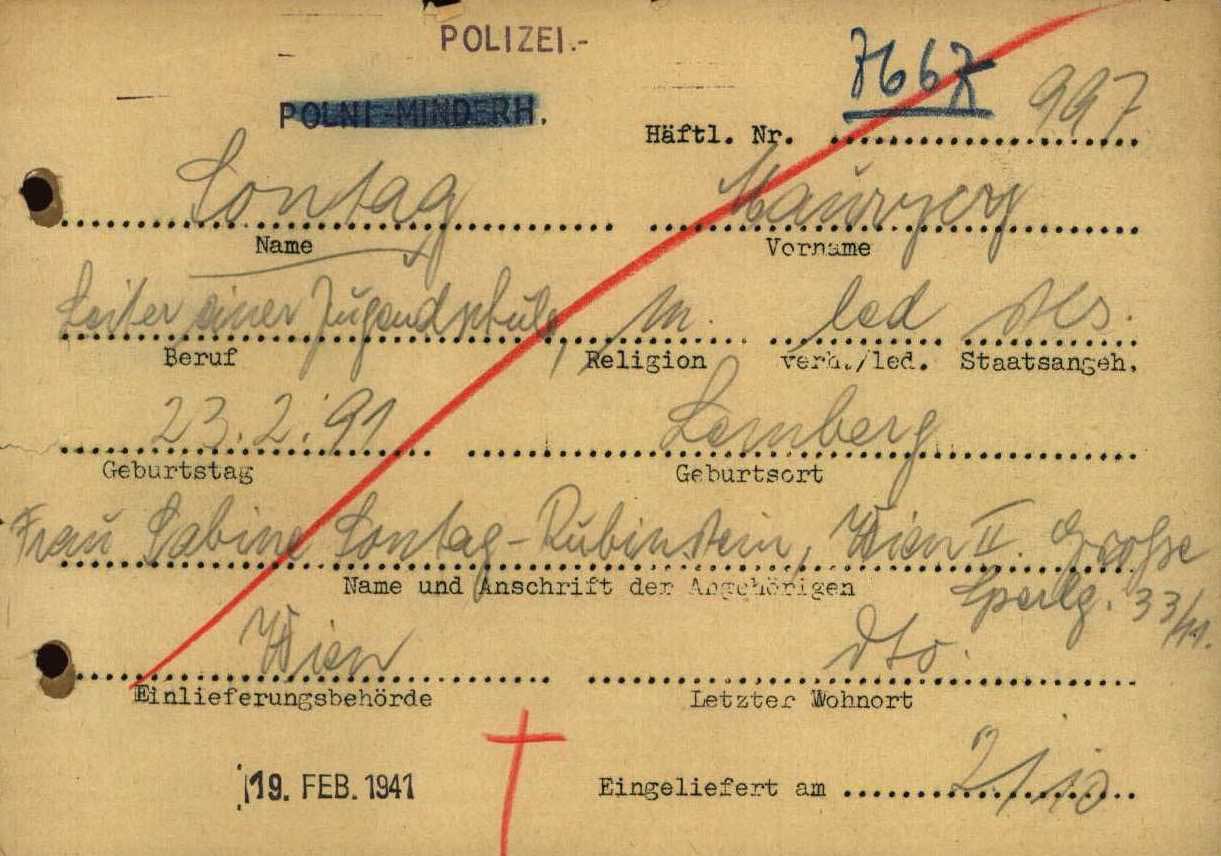 POLIZEI.-
7667
POLNI-MINDERH.
997
Häftl. Nr.
Sontag Maurycy
Name Vorname
Leiter einer Jugendschule, m. led
Beruf Religion verh./led. Staatsangeh.
23.2.91 Lemberg
Geburtstag Geburtsort
Frau Sabine Sontag-Rubinstein, Wien II. Große
Name und Anschrift der Angehörigen Sperlg. 33/11.
Wien dto.
Einlieferungsbehörde Letzter Wohnort
19. FEB. 1941 Eingeliefert am 2/10